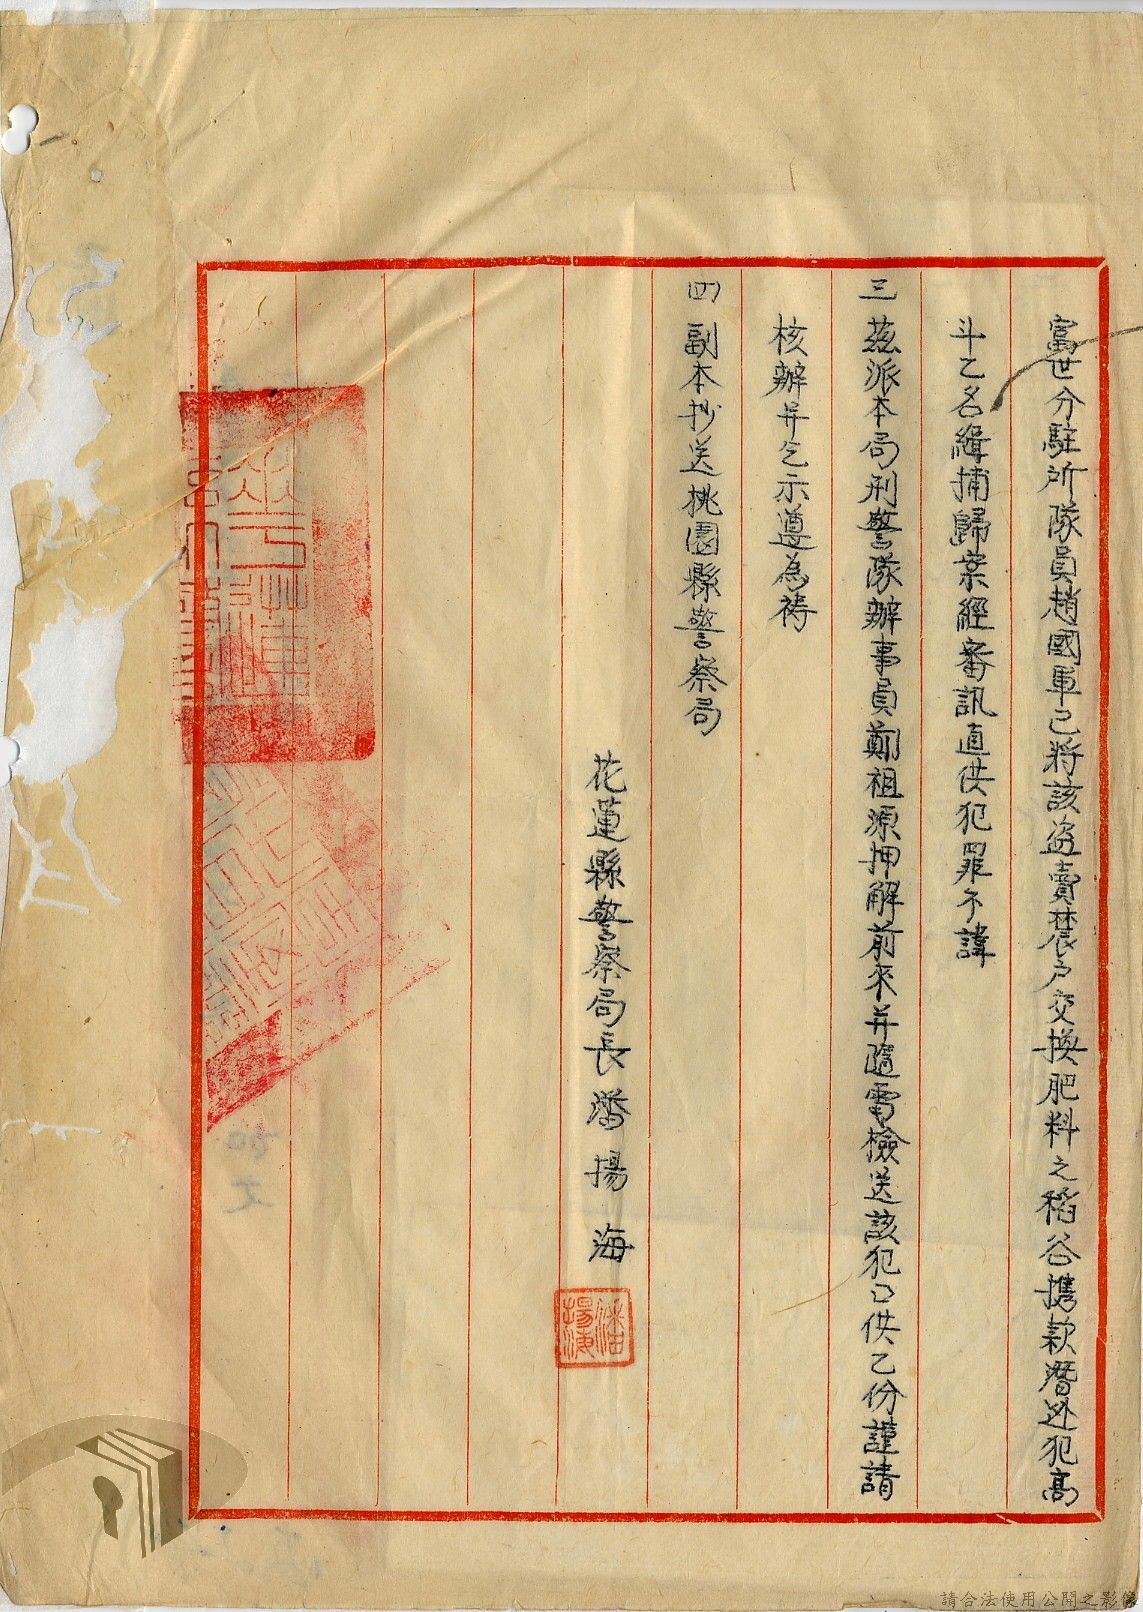 富世分駐所隊員趙國軍已將該盜賣農户交換肥料之稻谷携款潛逃犯高
斗乙名緝捕歸案經審訊直供犯罪不諱
三 茲派本局刑警隊辦事員鄭祖源押解前來并隨電檢送該犯口供乙份謹請
核辦并乞示遵為禱
四 副本抄送桃園縣警察局
花蓮縣警察局長潘揚海
潘揚海
請合法使用公開之影像